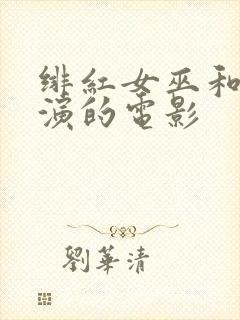 緋紅女巫和
演的電影
劉華清